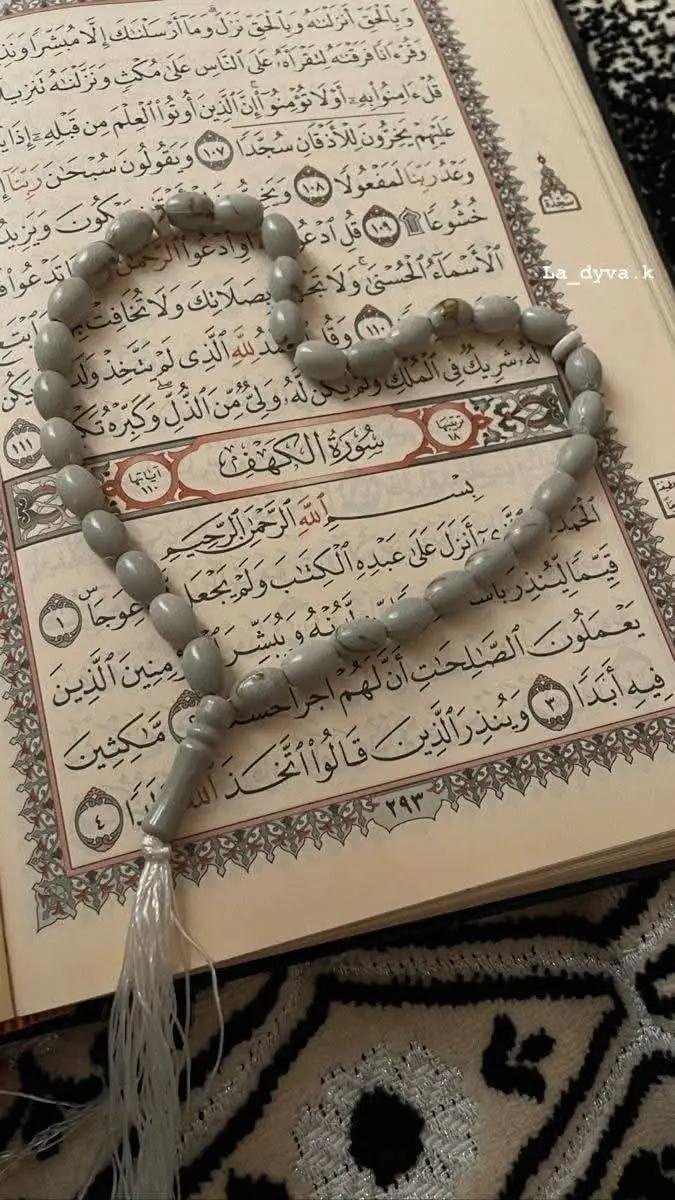 وَبِٱلْحَقِّ أَنزَلْنَٰهُ وَبِٱلْحَقِّ نَزَلَ وَمَآ أَرْسَلْنَٰكَ إِلَّا مُبَشِّرًا
وَقُرْءَانًا فَرَقْنَٰهُ لِتَقْرَأَهُۥ عَلَى ٱلنَّاسِ عَلَىٰ مُكْثٍ وَنَزَّلْنَٰهُ
قُلْ ءَامِنُوا۟ بِهِۦٓ أَوْ لَا تُؤْمِنُوٓا۟ إِنَّ ٱلَّذِينَ أُوتُوا۟ ٱلْعِلْمَ مِن قَبْلِهِۦٓ
عَلَيْهِمْ يَخِرُّونَ لِلْأَذْقَانِ سُجَّدًا ١٠٧ وَيَقُولُونَ سُبْحَٰنَ رَبِّنَآ
وَعْدُ رَبِّنَا لَمَفْعُولًا ١٠٨
خُشُوعًا ۩ ١٠٩ قُلِ أَوِ ٱدْعُوا۟ ٱلرَّحْمَٰنَ تَدْعُوا۟
سَجْدَة
La_dyva.k
ٱلْأَسْمَآءُ ٱلْحُسْنَىٰ وَلَا بِصَلَاتِكَ وَلَا تُخَافِتْ
١١٠ وَقُلِ لِلَّهِ ٱلَّذِى لَمْ يَتَّخِذْ وَلَدًا
لَّهُۥ شَرِيكٌ فِى ٱلْمُلْكِ وَلَمْ يَكُن لَّهُۥ وَلِىٌّ مِّنَ ٱلذُّلِّ وَكَبِّرْهُ ١١١
ترتيبها ١٨ سُورَةُ الكَهْفِ آياتها ١١٠
بِسْمِ ٱللَّهِ ٱلرَّحْمَٰنِ ٱلرَّحِيمِ
أَنزَلَ عَلَىٰ عَبْدِهِ ٱلْكِتَٰبَ وَلَمْ يَجْعَل عِوَجَا ۜ ١
قَيِّمًا لِّيُنذِرَ وَيُبَشِّرَ ٱلَّذِينَ
يَعْمَلُونَ ٱلصَّٰلِحَٰتِ أَنَّ لَهُمْ أَجْرًا مَّٰكِثِينَ
فِيهِ أَبَدًا ٣ وَيُنذِرَ ٱلَّذِينَ قَالُوا۟ ٱتَّخَذَ ٱللَّهُ ٤
٢٩٣